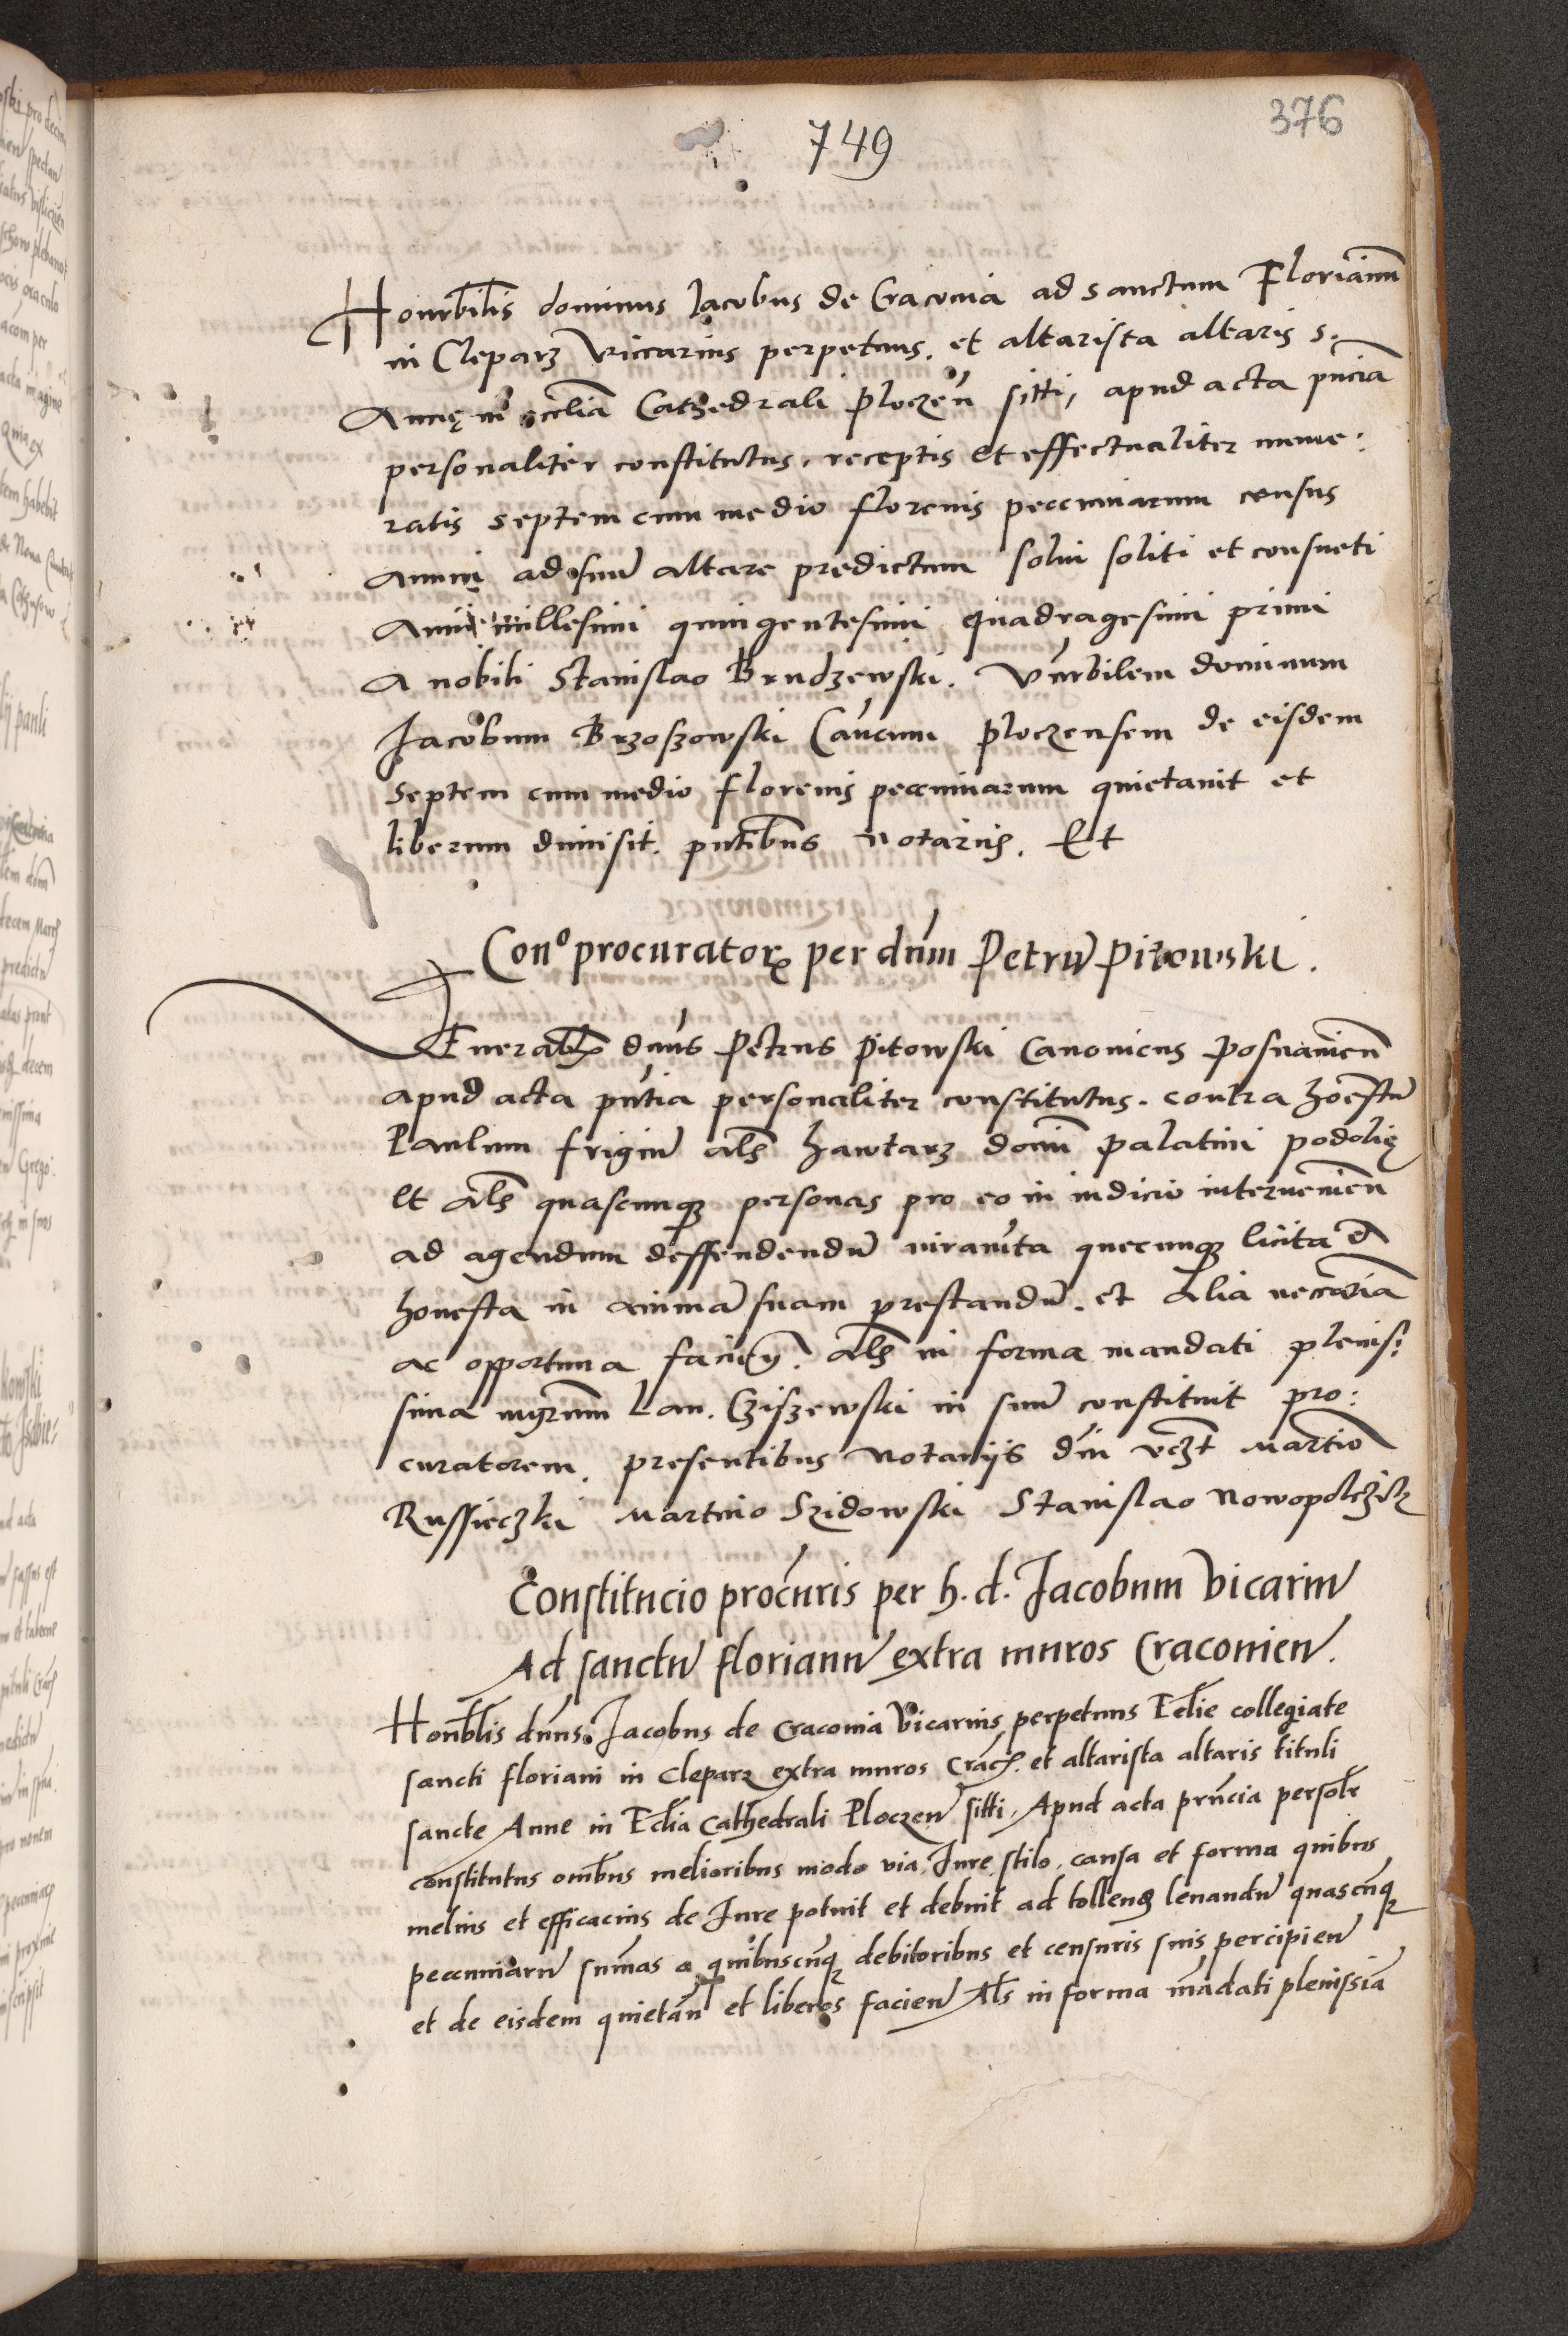 376
749
Honrbilis dominus Jacobus de Craconia ad sanctum Florianum
in Cleparz viccarius perpetuus. et altarista altaris s.
Annę in ecclia Cathedrali Ploczen sitti, apud acta pncia
personaliter constitutus, receptis et effectualiter nume:
ratis septem cum medio florenis peccuniarum census
annui ad suu altare predictum solui soliti et consueti
Anni millesimi quingentesimi quadragesimi primi
a nobili Stanislao Brudzewski. Vnrbilem dominum
Jacobum Brzoszowski Cancum ploczensem de eisdem
septem cum medio florenis peccuniarum quietauit et
liberum dimisit. pntibus notariis. Et
Cono procurator per dnm Petru Pitowski.
Venerablis dnus Petrus Pitowski Canonicus Posnanien
apud acta pntia personaliter constitutus. contra honestu
Paulum frigiu als hawtarz domi palatini podolię
et als quascunq personas pro eo in iudicio interuenien
ad agendum deffendendu iuramta quecunq licita et
honesta in anima suam prestandu. et alia neccaria
ac opportuna faciend. als in forma mandati plenis:
sima mgrum Lau. Cziszewski in suu constituit pro:
curatorem. presentibus Notariis dm vczt Martino
Russieczki Martino Szidowski Stanislao Nowopolczik
Constitucio procuris per h. d. Jacobum Vicariu
Ad sanctu florianu extra muros Craconien.
Honblis dnus Jacobus de Craconia Vicarius perpetuus Eclie collegiate
sancti floriani in Cleparz extra muros Crac. et altarista altaris tituli
sancte Anne in Eclia Cathedrali Ploczen sitti, Apud acta prncia persolr
constitutus omibus melioribus modo via, Jure, stilo, causa et forma quibus
melius et efficacius de Jure potuit et debuit ad tollend leuandu quascunq
peccuniaru sumas a quibuscunq debitoribus et censuris suis percipien
et de eisdem quietan et liberos facien Als in forma madati plenissia